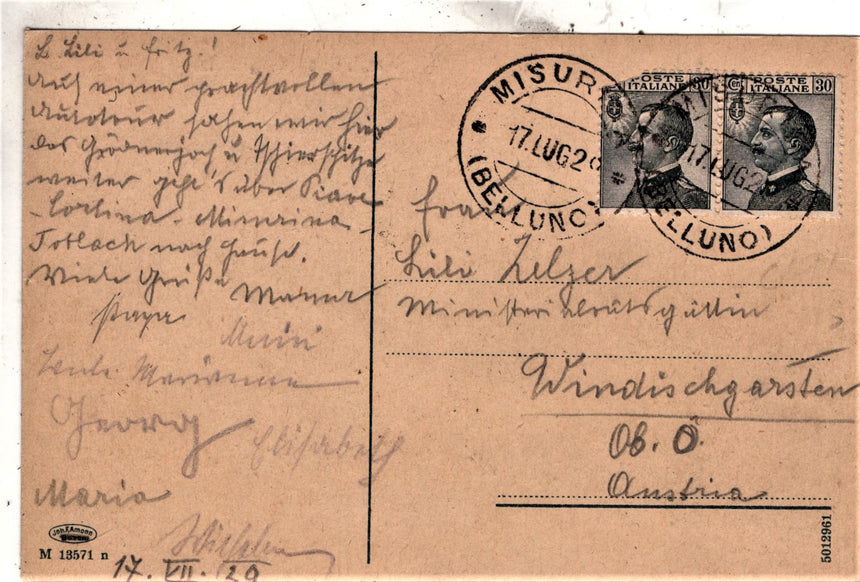 L Lili u Fritz!
Auf einer prachtvollen
Autotour sahen wir hier
das Grödnerjoch u
weiter geht's über Piave
- Cortina - Misurina -
Toblach nach Hause.
Viele Grüße Mama
Papa
Marianne
Georg
Elisabeth
Maria
17. VII. 29
Joh. F. Amonn
Bozen
M 13571 n
MISURINA
17. LUG 2
(BELLUNO)
POSTE
ITALIANE 30
POSTE
ITALIANE 30
17. LUG 2
(BELLUNO)
Frau
Lili Zelzer
Ministerialratsgattin
Windischgarsten
Ob. Ö.
Austria
5012961